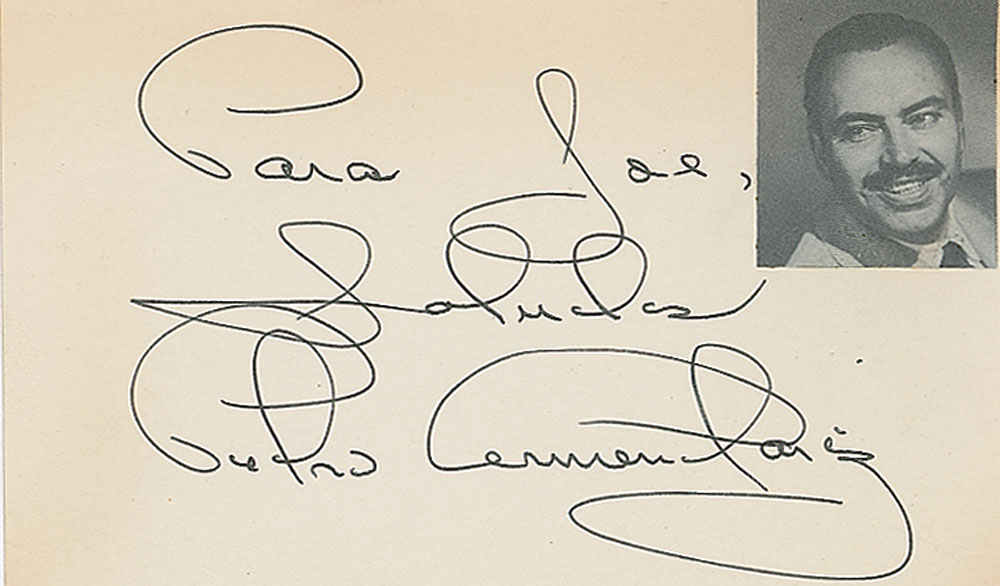 Para Joe,
Saludos
Pedro Armendáriz